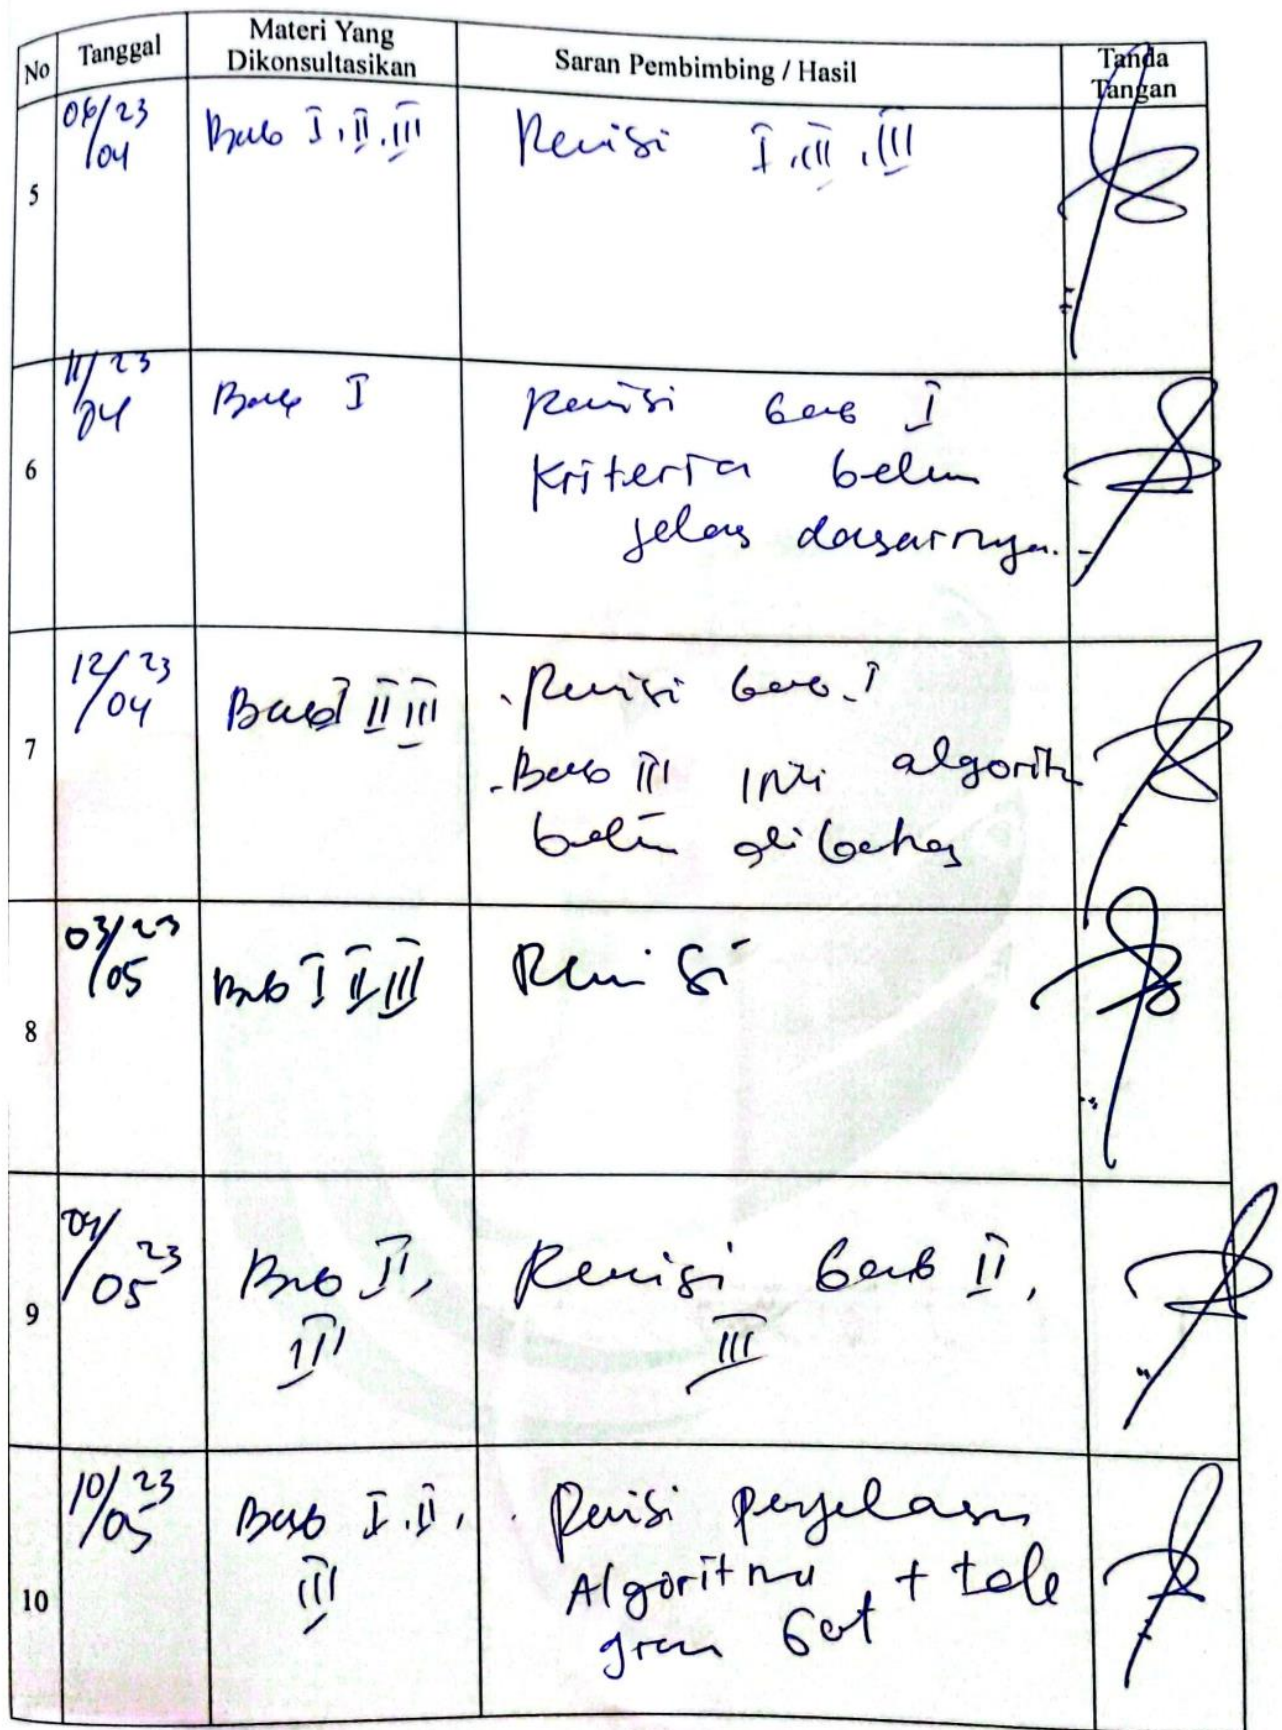 No Tanggal Materi Yang Dikonsultasikan Saran Pembimbing / Hasil Tanda Tangan
5 06/23 Bab I, II, III Revisi I, II, III
/04
6 11/23 Bab I Revisi bab I
/04 Kriteria belum
jelas dasarnya.
7 12/23 Bab I II III . Revisi bab I
/04 - Bab III inti algorit
belum dibahas
8 03/23 Bab I II III Revisi
/05
9 04/23 Bab II, Revisi bab II,
/05 III III
10 10/23 Bab I, II, . Revisi penjelasan
/05 III Algoritma + tele
gram bot